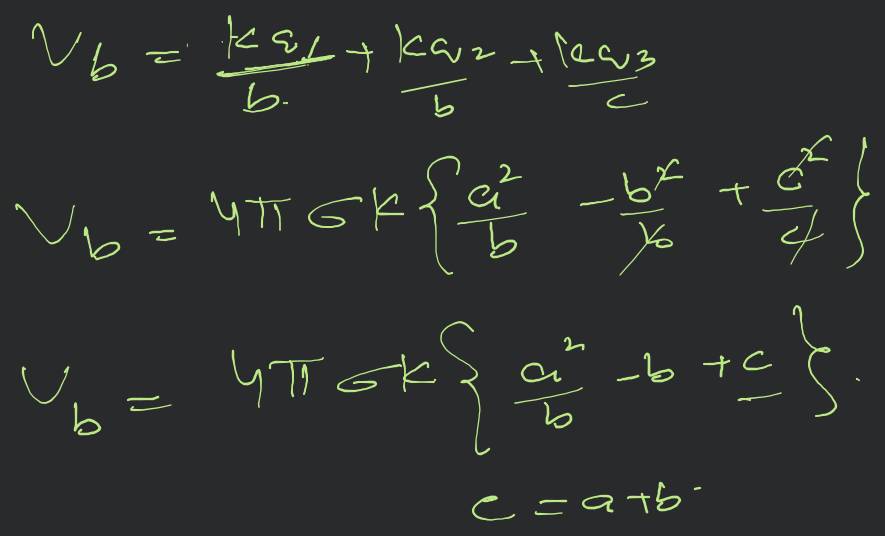 V_b = kq_1/b + kq_2/b + kq_3/c
V_b = 4πσk{a²/b - b²/b + c²/c}
V_b = 4πσk{a²/b - b + c}.
c = a+b